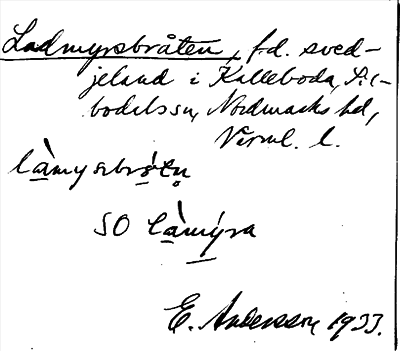 Ladmyrsbråten, fd. sved-
jeland i Kalleboda, Sil-
bodals sn, Nordmarks hd,
Värml. l.
làmysbrótn̥
SO làmýra
E. Andersson 1933.